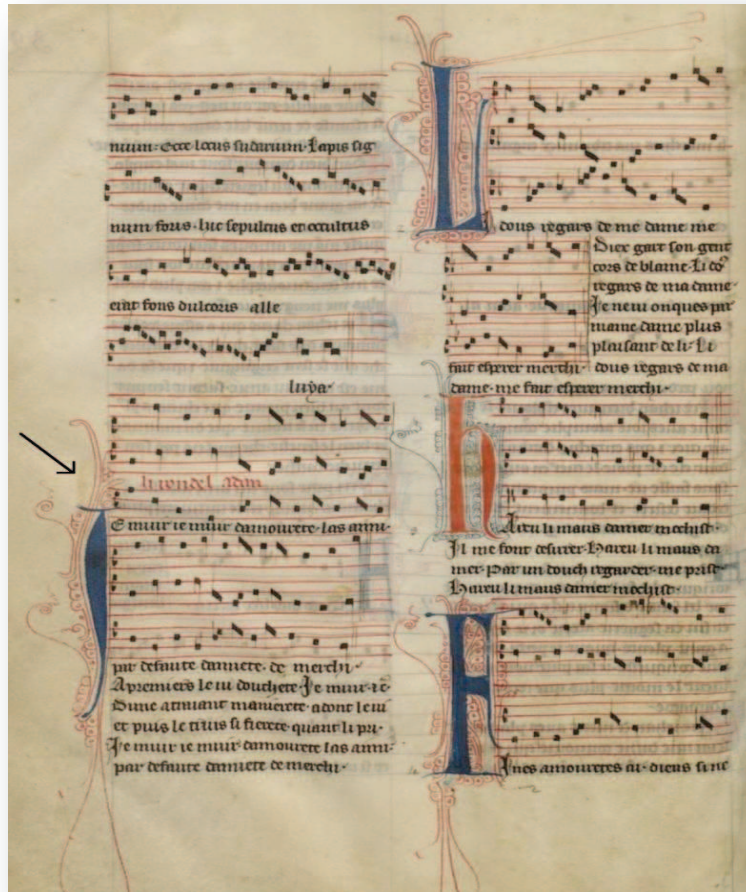 num. Ecce locus sudarium. Lapis sig
num foris. huc sepultus et occultus
erat fons dulcoris alle
luya.
li rondel adan
JE muir ie muir damourete. las aimi.
par defaute damiete. de merchi.
A premiers le vi douchete. Je muir. ie.
Dune manierete. adont le vi
et puis le si fierete. quant li pri.
Je muir ie muir damourete las aimi.
par defaute damiete de merchi.
LI dous regars de me dame me
fait esperer merchi.
Diex gart son gent
cors de blame. Li do
regars de ma dame.
Je ne vi onques par
mame dame plus
plaisant de li. Li
dous regars de ma
dame. me fait esperer merchi.
hAreu li maus damer mochist.
Jl me font desirer. Hareu li maus da
mer. Par un douch regarder. me prist.
Hareu li maus damer mochist.
FInes amouretes ai. dieus si ne